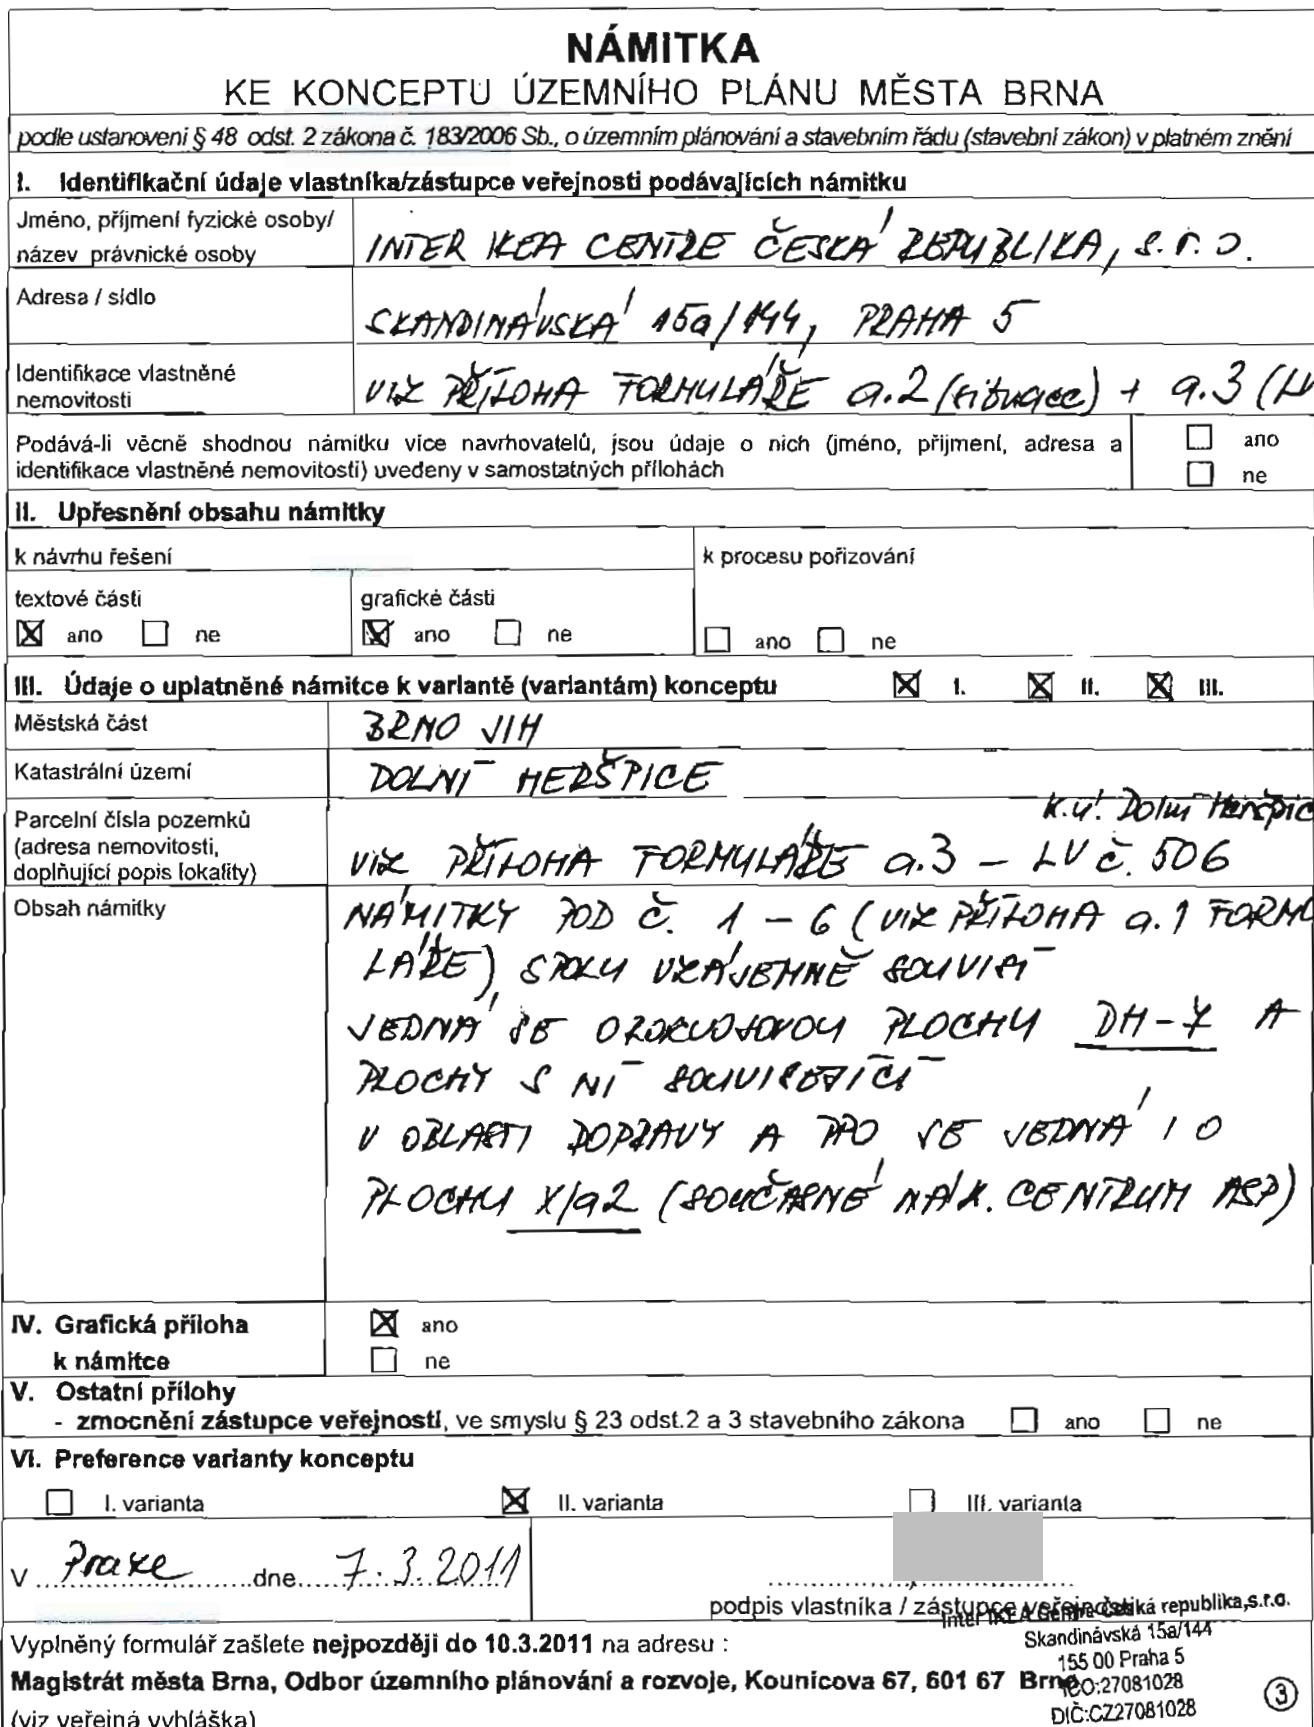 NÁMITKA
KE KONCEPTU ÚZEMNÍHO PLÁNU MĚSTA BRNA
podle ustanovení § 48 odst. 2 zákona č. 183/2006 Sb., o územním plánování a stavebním řádu (stavební zákon) v platném znění
I. Identifikační údaje vlastníka/zástupce veřejnosti podávajících námitku
Jméno, příjmení fyzické osoby/
název právnické osoby
INTER IKEA CENTRE ČESKÁ REPUBLIKA, s.r.o.
Adresa / sídlo
SKANDINÁVSKÁ 15a/144, PRAHA 5
Identifikace vlastněné
nemovitosti
VIZ PŘÍLOHA FORMULÁŘE a.2 (situace) + a.3 (LV
Podává-li věcně shodnou námitku více navrhovatelů, jsou údaje o nich (jméno, přijmení, adresa a
identifikace vlastněné nemovitosti) uvedeny v samostatných přílohách
ano
ne
II. Upřesnění obsahu námitky
k návrhu řešení
k procesu pořizování
textové části
grafické části
ano ne
ano ne
ano ne
III. Údaje o uplatněné námitce k variantě (variantám) konceptu I. II. III.
Městská část
BRNO JIH
Katastrální území
DOLNÍ HERŠPICE
Parcelní čísla pozemků
(adresa nemovitosti,
doplňující popis lokality)
k.ú. Dolní Heršpic
VIZ PŘÍLOHA FORMULÁŘE a.3 – LV č. 506
Obsah námitky
NÁMITKY POD Č. 1 – 6 (VIZ PŘÍLOHA a.1 FORMU
LÁŘE) SPOLU VZÁJEMNĚ SOUVISÍ
JEDNÁ SE O ROZVOJOVOU PLOCHU DH-7 A
PLOCHY S NÍ SOUVISEJÍCÍ
V OBLASTI DOPRAVY A PPO SE JEDNÁ I O
PLOCHU X/a2 (SOUČASNÉ NÁK. CENTRUM ASP)
IV. Grafická příloha
k námitce
ano
ne
V. Ostatní přílohy
- zmocnění zástupce veřejnosti, ve smyslu § 23 odst.2 a 3 stavebního zákona ano ne
VI. Preference varianty konceptu
I. varianta II. varianta III. varianta
V Praze dne 7.3.2011
podpis vlastníka / zástupce veřejnosti
Inter IKEA Centre Česká republika,s.r.o.
Skandinávská 15a/144
155 00 Praha 5
IČO:27081028
DIČ:CZ27081028
Vyplněný formulář zašlete nejpozději do 10.3.2011 na adresu :
Magistrát města Brna, Odbor územního plánování a rozvoje, Kounicova 67, 601 67 Brno
(viz veřejná vyhláška)
3